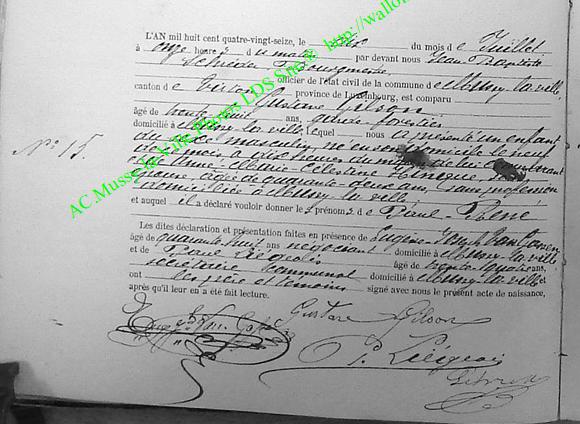 L'AN mil huit cent quatre-vingt-seize, le dix du mois de Juillet
à onze heures du matin par devant nous Jean Baptiste
Schréder Bourgmestre
officier de l'état civil de la commune de Mussy-la-ville,
canton de Virton province de Luxembourg, est comparu
Gustave Gilson
âgé de trente huit ans, garde forestier
domicilié à Mussy-la-ville lequel nous a présenté un enfant
du sexe masculin, né en son domicile le neuf
de ce mois à dix heures du de lui déclarant
et de Marie Célestine
épouse, âgée de quarante-deux ans, sans profession
domiciliée à Mussy-la-ville
et auquel il a déclaré vouloir donner les prénoms de Paul-René
Les dites déclaration et présentation faites en présence de Eugène Joseph
âgé de quarante huit ans négociant domicilié à Mussy-la-ville
et de Paul Liégeois âgé de trente quatre ans,
secrétaire communal domicilié à Mussy-la-ville et
ont les père et témoins signé avec nous le présent acte de naissance,
après qu'il leur en a été fait lecture.
N° 15
Gustave Gilson
P. Liégeois
AC.Musse la Ville Photos LDS Site® http://wallo